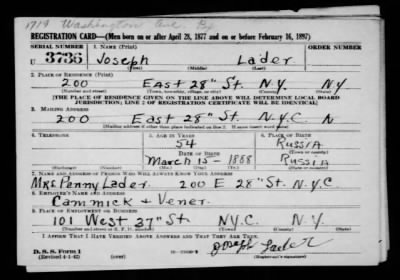 1719 Washington Ave Bx
REGISTRATION CARD—(Men born on or after April 28, 1877 and on or before February 16, 1897)
SERIAL NUMBER 1. NAME (Print) ORDER NUMBER
U 3736 Joseph Lader
(First) (Middle) (Last)
2. PLACE OF RESIDENCE (Print)
200 East 28" St. N.Y. NY
(Number and street) (Town, township, village, or city) (County) (State)
[THE PLACE OF RESIDENCE GIVEN ON THE LINE ABOVE WILL DETERMINE LOCAL BOARD
JURISDICTION; LINE 2 OF REGISTRATION CERTIFICATE WILL BE IDENTICAL]
3. MAILING ADDRESS
200 East 28" St. N.Y.C. N
(Mailing address if other than place indicated on line 2. If same insert word same)
4. TELEPHONE 5. AGE IN YEARS 6. PLACE OF BIRTH
54 RUSSIA
DATE OF BIRTH (Town or county)
March 15 - 1888 RUSSIA
(Exchange) (Number) (Mo.) (Day) (Yr.) (State or country)
7. NAME AND ADDRESS OF PERSON WHO WILL ALWAYS KNOW YOUR ADDRESS
Mrs Penny Lader. 200 E 28" St. N.Y.C
8. EMPLOYER'S NAME AND ADDRESS
Cammick + Vener.
9. PLACE OF EMPLOYMENT OR BUSINESS
101 West 37" St. N.Y.C. N.Y
(Number and street or R. F. D. number) (Town) (County) (State)
I AFFIRM THAT I HAVE VERIFIED ABOVE ANSWERS AND THAT THEY ARE TRUE.
D. S. S. Form 1
(Revised 4-1-42) Joseph Lader